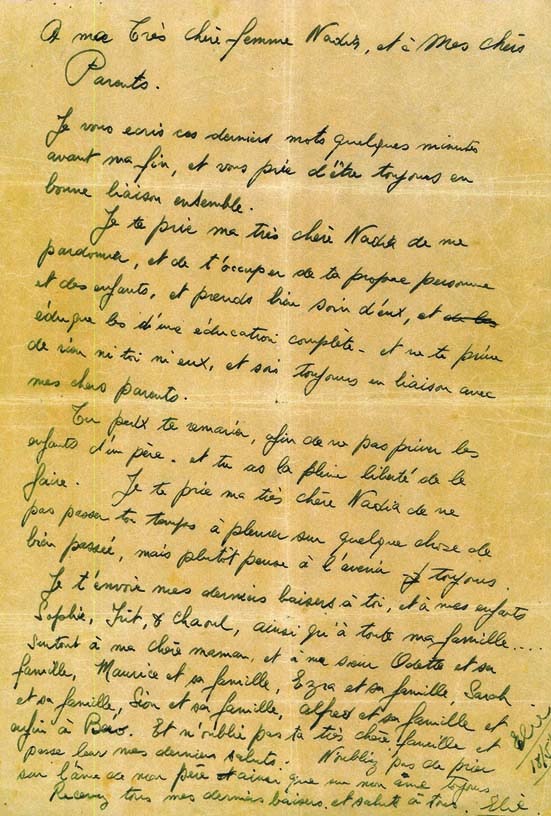 A ma Très chère femme Nadia, et à Mes chers
Parents.
Je vous ecris ces derniers mots quelques minutes
avant ma fin, et vous prie d'être toujours en
bonne liaison ensemble.
Je te prie ma très chère Nadia de me
pardonner, et de t'occuper de ta propre personne
et des enfants, et prends bien soin d'eux, et de les
éduque les d'une éducation complète - et ne te prive
de rien ni toi ni eux, et sois toujours en liaison avec
mes chers parents.
Tu peux te remarier, afin de ne pas priver les
enfants d'un père - et tu as la pleine liberté de le
faire. Je te prie ma très chère Nadia de ne
pas passer ton temps à pleurer sur quelque chose de
bien passée, mais plutôt pense à l'avenir toujours
Je t'envoie mes derniers baisers à toi, et à mes enfants
Sophie, Irit, & Chaoul, ainsi qu'à toute ma famille....
Surtout à ma chère maman, et à ma sœur Odette et sa
famille, Maurice et sa famille, Ezra et sa famille, Sarah
et sa famille, Sion et sa famille, Alfred et sa famille et
enfin à. Et n'oublie pas ta très chère famille et
passe leur mes derniers saluts. N'oubliez pas de prier
sur l'âme de mon père et ainsi que sur mon âme toujours
Recevez tous mes derniers baisers et saluts à tous. Elie
Elie